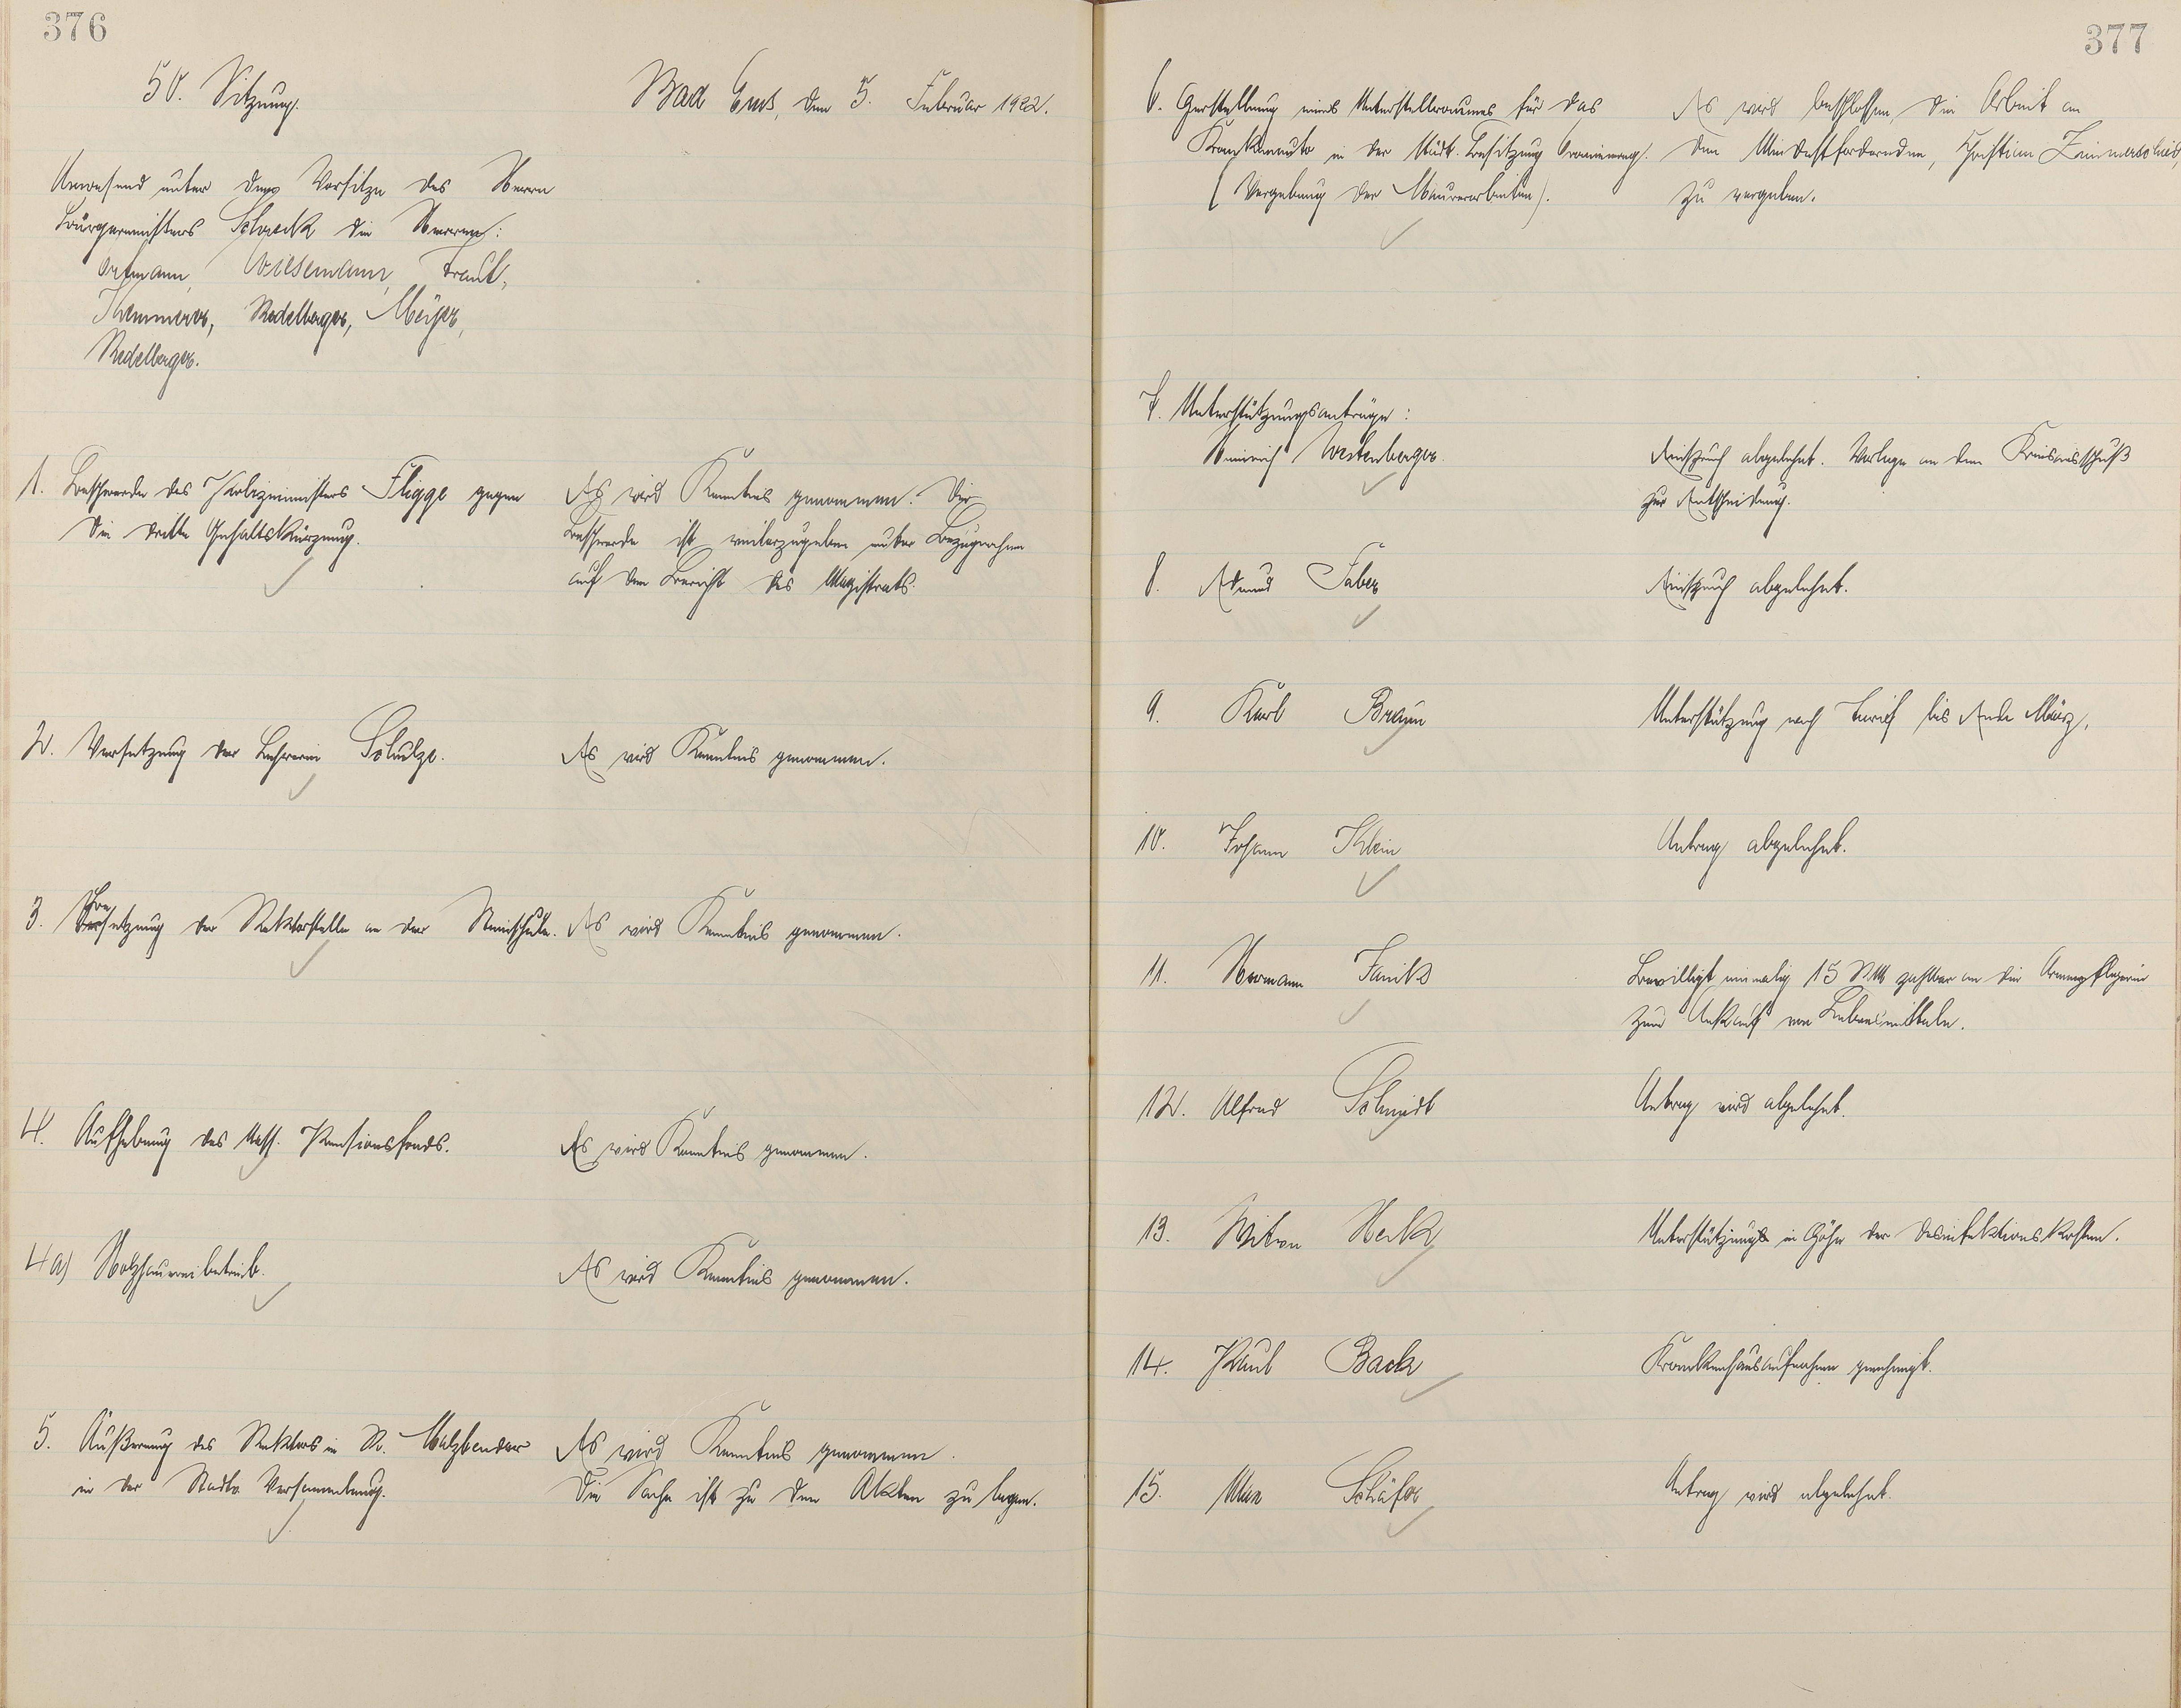 376
50. Sitzung.
Bad Ems, den 5. Februar 1932.
Anwesend unter dem Vorsitze des Herrn
Bürgermeisters Schreck die Herren:
Ortmann, Wiesemann, Traut,
Kemmerer, Redelberger, Meyer,
Redelberger.
1. Beschwerde des Polizeimeisters Fligge gegen
die dritte Gehaltskürzung.
Es wird Kenntnis genommen. Die
Beschwerde ist weiterzugeben unter Bezugnahme
auf den Bericht des Magistrats.
2. Versetzung der Lehrerin Schulze.
Es wird Kenntnis genommen.
3. Besetzung der Rektorstelle an der Steinschule.
Es wird Kenntnis genommen.
4. Aufhebung des Nass. Pensionsfonds.
Es wird Kenntnis genommen.
4a) Holzhauereibetrieb.
Es wird Kenntnis genommen.
5. Äußerung des Rektors in R. Malzbender
in der Stadtv. Versammlung.
Es wird Kenntnis genommen.
Die Sache ist zu den Akten zu legen.
377
6. Herstellung eines Unterstellraumes für das
Krankenauto in der städt. Besitzung Oranienweg.
(Vergebung der Maurerarbeiten).
Es wird beschlossen, die Arbeit an
den Mindestfordernden, Christian Zimmerschied,
zu vergeben.
7. Unterstützungsanträge:
Heinrich Westenberger.
Einspruch abgelehnt. Vorlage an den Kreisausschuß
zur Entscheidung.
8. Edmund Faber
Einspruch abgelehnt.
9. Karl Braun
Unterstützung nach Tarif bis Ende März.
10. Johann Klein
Antrag abgelehnt.
11. Hermann Janik
Bewilligt einmalig 15 RM zahlbar an die Armenpflegerin
zum Ankauf von Lebensmitteln.
12. Alfred Schmidt
Antrag wird abgelehnt.
13. Witwe Heck
Unterstützung in Höhe der Desinfektionskosten.
14. Paul Back
Krankenhausaufnahme genehmigt.
15. Max Schäfer
Antrag wird abgelehnt.